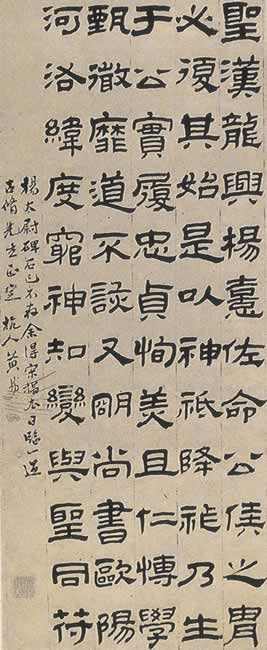 聖漢龍興楊憙佐命公侯之胄
必復其始是以神祇降祉乃生
于公實履忠貞恂美且仁博學
甄徹靡道不該又明尚書歐陽
河洛緯度窮神知變與聖同苻
楊太尉碑石已不存余得宋搨本日臨一過
古脩先生正定 杭人黃易